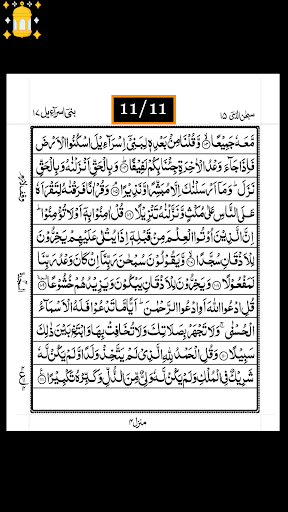 11/11
سبحن الذی ۱۵
بنی اسرآءیل ۱۷
مَّعَهٗ جَمِیْعًا ۙ وَّقُلْنَا مِنْۢ بَعْدِهٖ لِبَنِیْۤ اِسْرَآءِیْلَ اسْكُنُوا الْاَرْضَ
فَاِذَا جَآءَ وَعْدُ الْاٰخِرَةِ جِئْنَا بِكُمْ لَفِیْفًا ؕ وَبِالْحَقِّ اَنْزَلْنٰهُ وَبِالْحَقِّ
نَزَلَ ؕ وَمَاۤ اَرْسَلْنٰكَ اِلَّا مُبَشِّرًا وَّنَذِیْرًا ۘ وَقُرْاٰنًا فَرَقْنٰهُ لِتَقْرَاَهٗ
عَلَی النَّاسِ عَلٰی مُكْثٍ وَّنَزَّلْنٰهُ تَنْزِیْلًا قُلْ اٰمِنُوْا بِهٖۤ اَوْ لَا تُؤْمِنُوْا ؕ
اِنَّ الَّذِیْنَ اُوْتُوا الْعِلْمَ مِنْ قَبْلِهٖۤ اِذَا یُتْلٰی عَلَیْهِمْ یَخِرُّوْنَ
لِلْاَذْقَانِ سُجَّدًا ۙ وَّیَقُوْلُوْنَ سُبْحٰنَ رَبِّنَاۤ اِنْ كَانَ وَعْدُ رَبِّنَا
لَمَفْعُوْلًا وَیَخِرُّوْنَ لِلْاَذْقَانِ یَبْكُوْنَ وَیَزِیْدُهُمْ خُشُوْعًا ۩
قُلِ ادْعُوا اللّٰهَ اَوِ ادْعُوا الرَّحْمٰنَ ؕ اَیًّا مَّا تَدْعُوْا فَلَهُ الْاَسْمَآءُ
الْحُسْنٰی ۚ وَلَا تَجْهَرْ بِصَلَاتِكَ وَلَا تُخَافِتْ بِهَا وَابْتَغِ بَیْنَ ذٰلِكَ
سَبِیْلًا وَقُلِ الْحَمْدُ لِلّٰهِ الَّذِیْ لَمْ یَتَّخِذْ وَلَدًا وَّلَمْ یَكُنْ لَّهٗ
شَرِیْكٌ فِی الْمُلْكِ وَلَمْ یَكُنْ لَّهٗ وَلِیٌّ مِّنَ الذُّلِّ وَكَبِّرْهُ تَكْبِیْرًا
منزل ۴